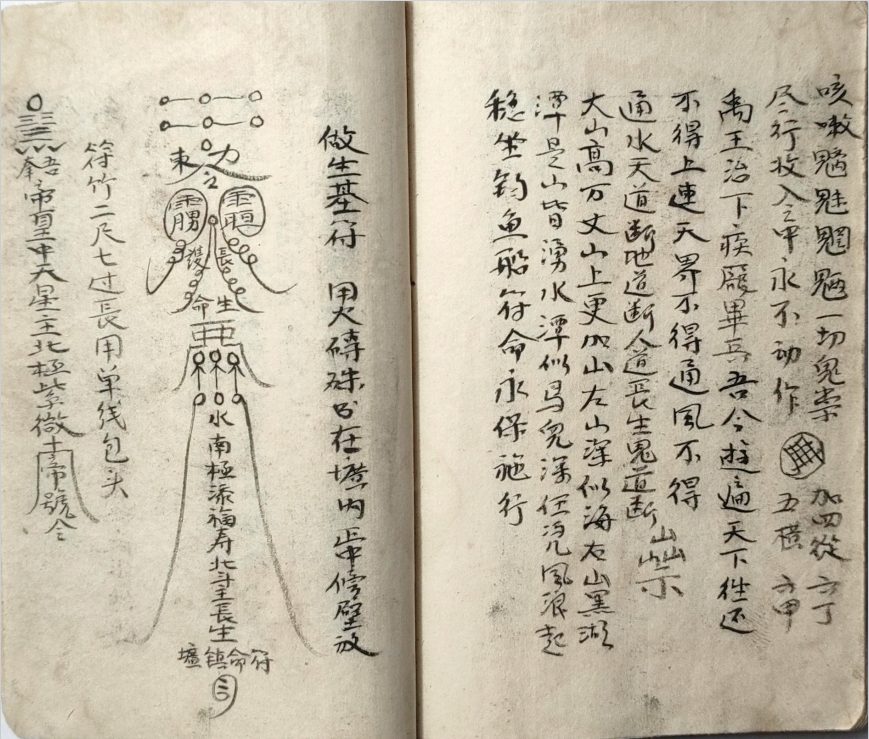 咳嗽魑魅魍魉一切鬼祟
加四從 六丁
尽行收入亼中永不动作
五橫 六甲
禹王治下疾 兵吾今 遍天下往还
不得上連天界不得通風不得
通水天道断地道断人道長生鬼道断
大山高万丈山上更加山左山深似海右山黑湖
潭是山皆湧水潭似 深任 凡風浪起
稳坐釣鱼船符命永保施行
做生基符 用火磚硃 在壙內正中傍壁放
東
力
獲長
命生
水南極添福寿北斗主長生
符命鎮壙
符竹二尺七过長用单线包头
帝皇中天星主北極紫微 帝號令